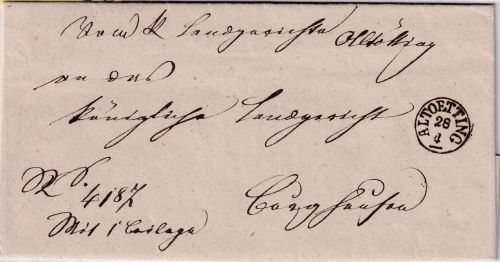 Vom K Landgerichte Altötting
an das
königliche Landgericht
ALTOETTING
28
4
R. S.
4187
Burghausen
Mit 1 Beilage